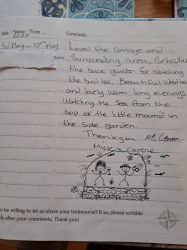 Date / Name / From
Comments
30th May - 10th May
Loved the Cottage and
surrounding area, Particularly
the back garden for watching
the bird life. Beautiful weather
and lovely warm long evenings
Watching the Sea from the
top of the little mound in
the side garden.
Thank you
be willing to let us share your testimonial? If so, please scribble
ls after your comments. Thank you!